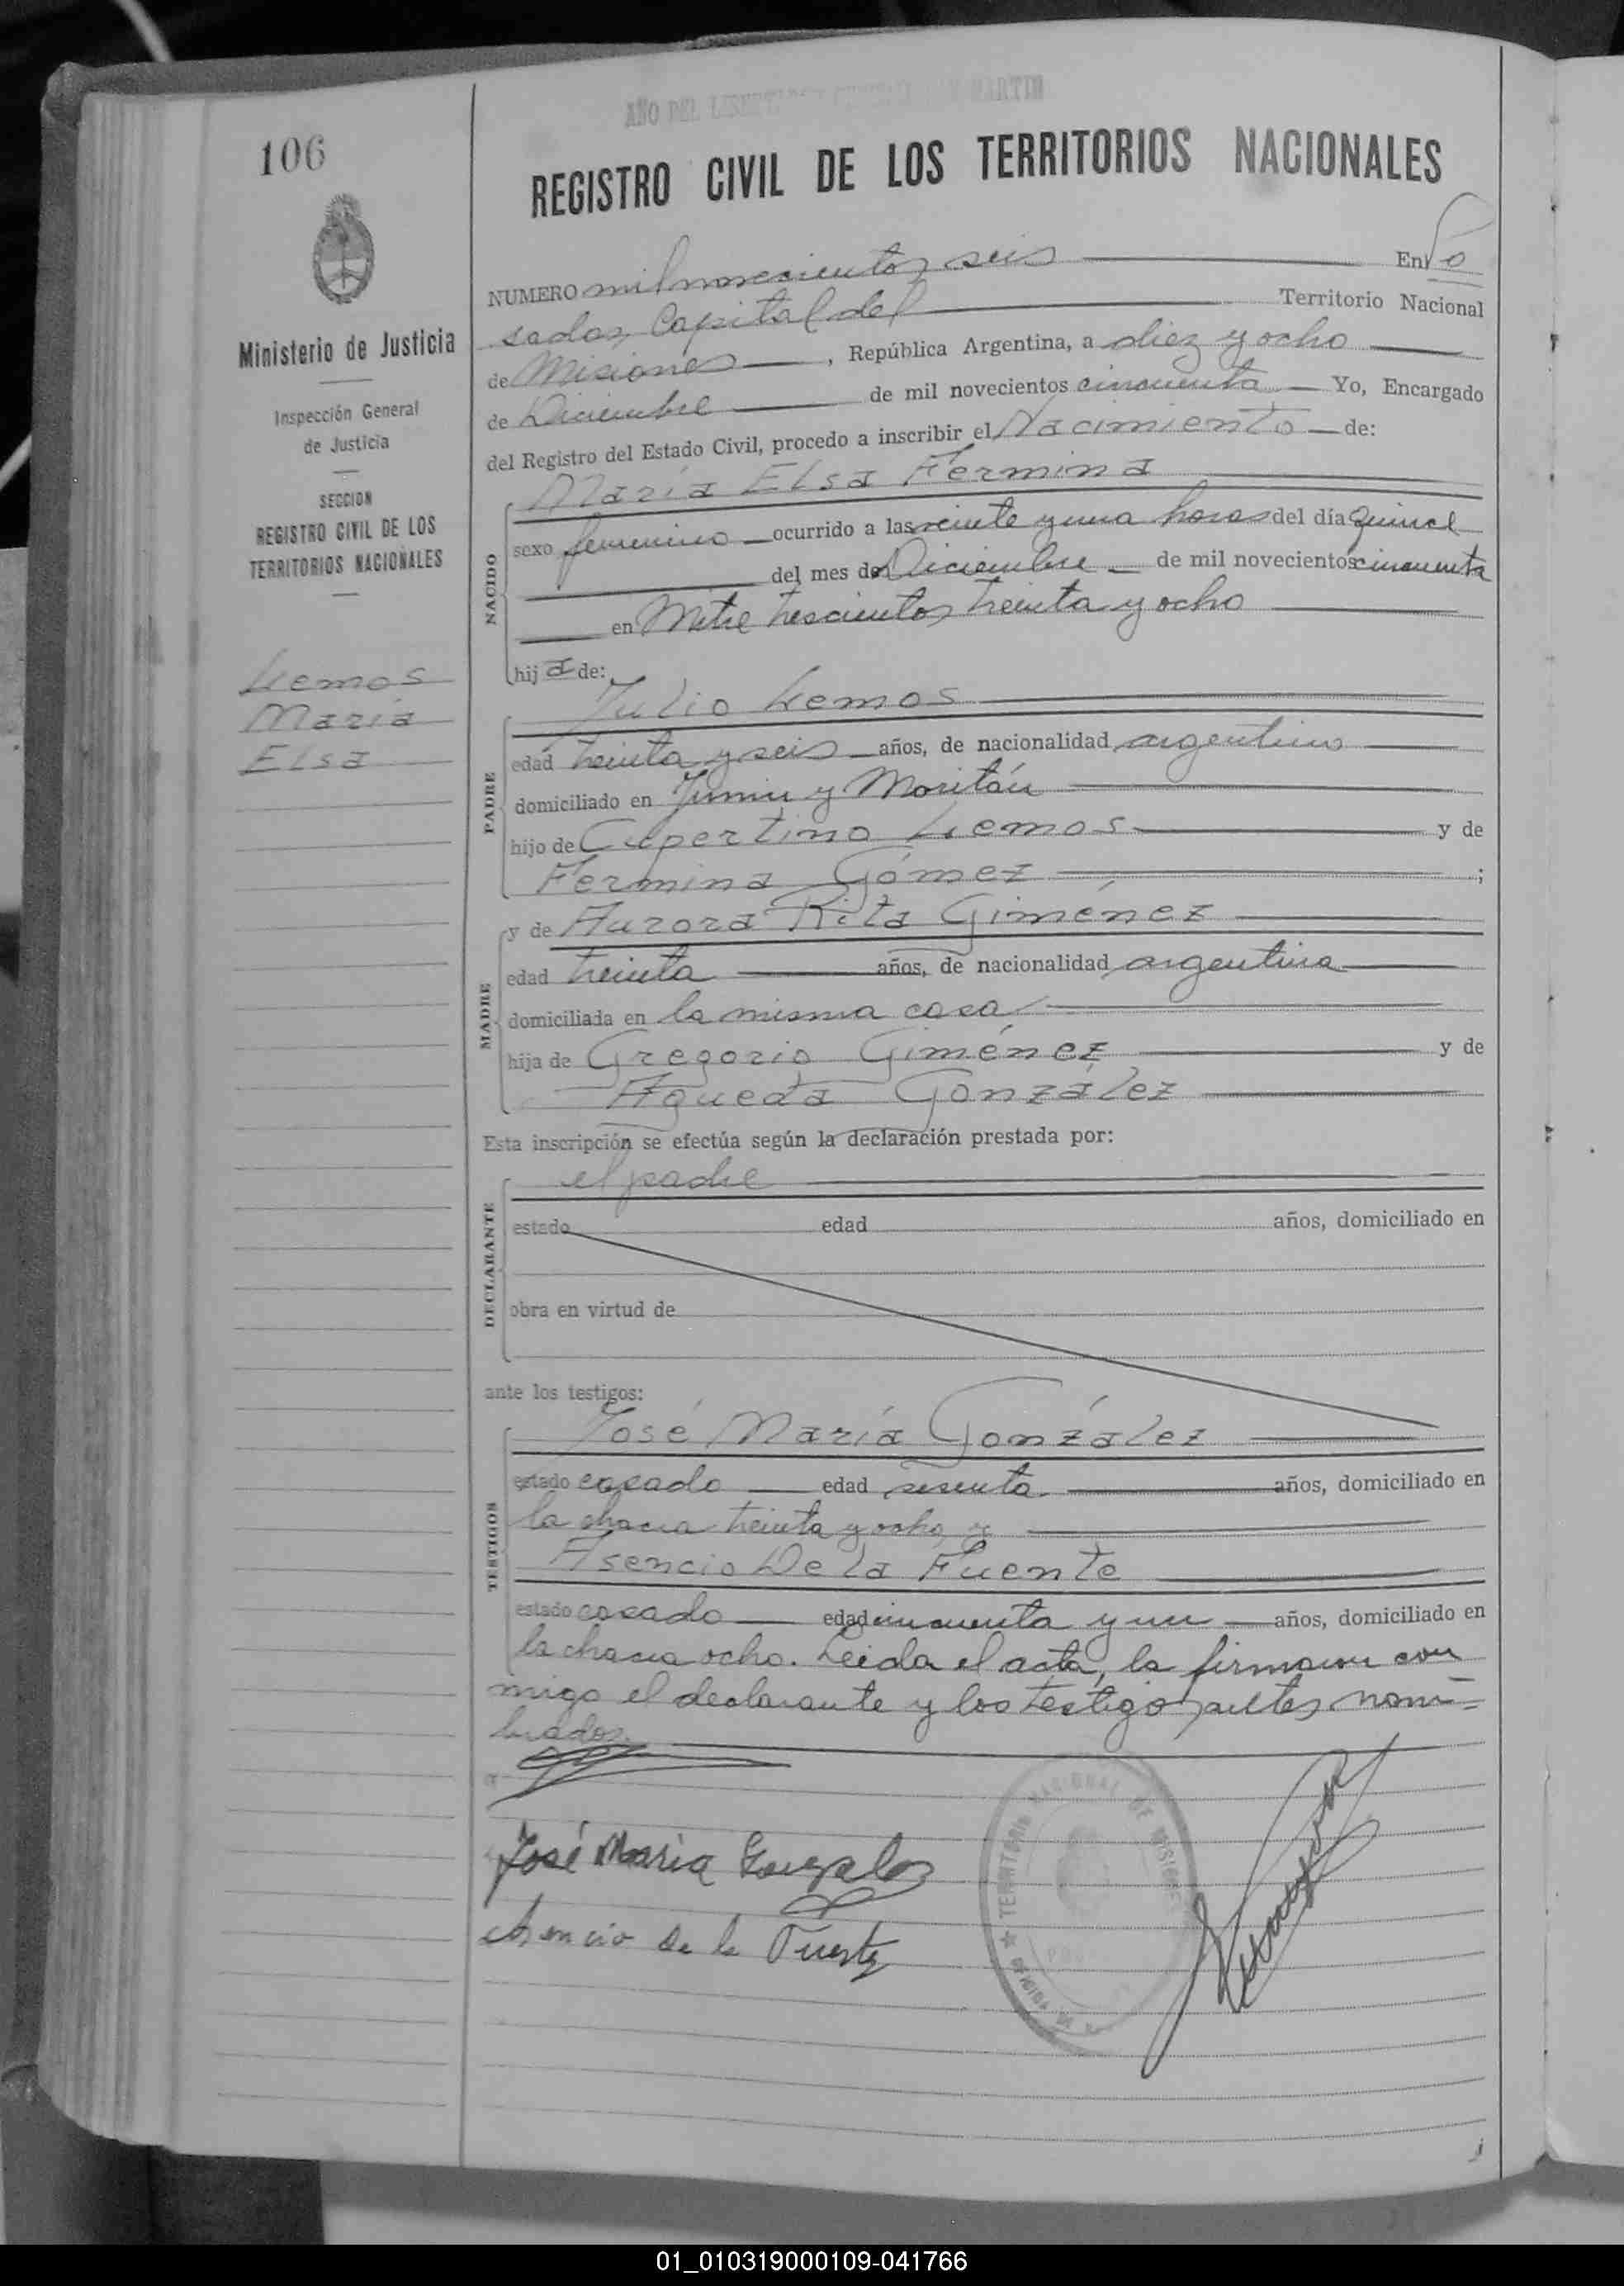 AÑO DEL LIBERTADOR GENERAL SAN MARTIN
106
REGISTRO CIVIL DE LOS TERRITORIOS NACIONALES
Ministerio de Justicia
Inspección General
de Justicia
SECCION
REGISTRO CIVIL DE LOS
TERRITORIOS NACIONALES
Lemos
María
Elsa
NUMERO mil novecientos seis En Po
sadas, Capital del Territorio Nacional
de Misiones, República Argentina, a diez y ocho
de Diciembre de mil novecientos cincuenta Yo, Encargado
del Registro del Estado Civil, procedo a inscribir el Nacimiento de:
NACIDO
María Elsa Fermina
sexo femenino ocurrido a las veinte y una horas del día quince
del mes de Diciembre de mil novecientos cincuenta
en Mitre trescientos treinta y ocho
hija de:
PADRE
Julio Lemos
edad treinta y seis años, de nacionalidad argentino
domiciliado en Junin y Moritán
hijo de Cupertino Lemos y de
Fermina Gómez ;
MADRE
y de Aurora Rita Giménez
edad treinta años, de nacionalidad argentina
domiciliada en la misma casa
hija de Gregorio Giménez y de
Agueda González
Esta inscripción se efectúa según la declaración prestada por:
DECLARANTE
el padre
estado edad años, domiciliado en
obra en virtud de
ante los testigos:
TESTIGOS
José María González
estado casado edad sesenta años, domiciliado en
la chacra treinta y ocho y
Asencio De la Fuente
estado casado edad cincuenta y un años, domiciliado en
la chacra ocho. Leida el acta, la firmaron con
migo el declarante y los testigos antes nom=
brados.
José Maria Gonzalez
Asencio de la Fuente
TERRITORIO NACIONAL DE MISIONES
01_010319000109-041766